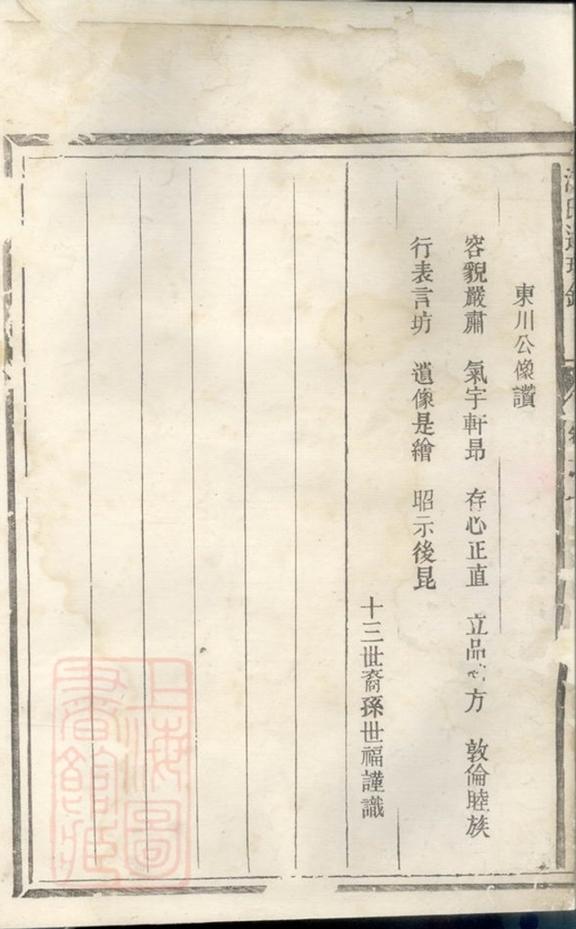 東川公像讚
容貌嚴肅　氣宇軒昂　存心正直　立品　方　敦倫睦族
行表言坊　遺像是繪　昭示後昆
十三世裔孫世福謹識
上海圖書館藏